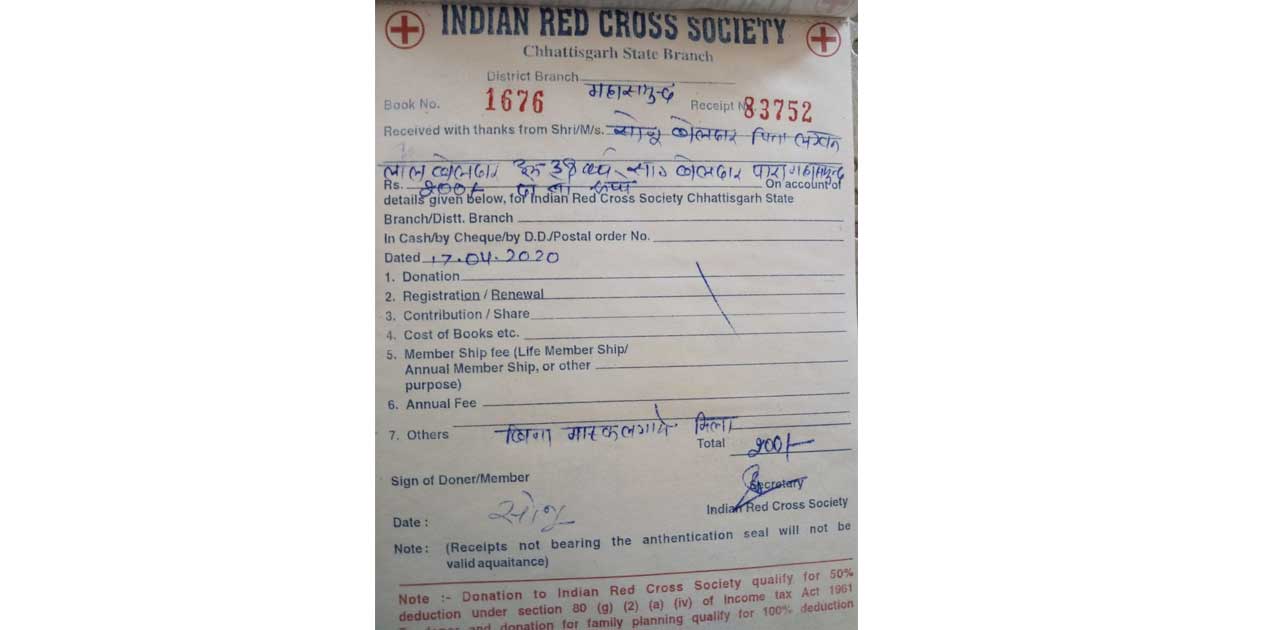 INDIAN RED CROSS SOCIETY
Chhattisgarh State Branch
District Branch महासमुन्द
Book No. 1676 Receipt N 83752
Received with thanks from Shri/M/s. सोनू बेलदार पिता लखन
लाल बेलदार उम्र 38 वर्ष सा० बेलदार पारा महासमुन्द
Rs. 200/- रूपये On account of
details given below, for Indian Red Cross Society Chhattisgarh State
Branch/Distt. Branch
In Cash/by Cheque/by D.D./Postal order No.
Dated 17.04.2020
1. Donation
2. Registration / Renewal
3. Contribution / Share
4. Cost of Books etc.
5. Member Ship fee (Life Member Ship/
Annual Member Ship, or other
purpose)
6. Annual Fee
7. Others बिना मास्क लगाये मिला
Total 200/-
Sign of Doner/Member
Secretary
Indian Red Cross Society
Date : सोनू
Note : (Receipts not bearing the anthentication seal will not be
valid aquaitance)
Note :- Donation to Indian Red Cross Society qualify for 50%
deduction under section 80 (g) (2) (a) (iv) of Income tax Act 1961
and donation for family planning qualify for 100% deduction